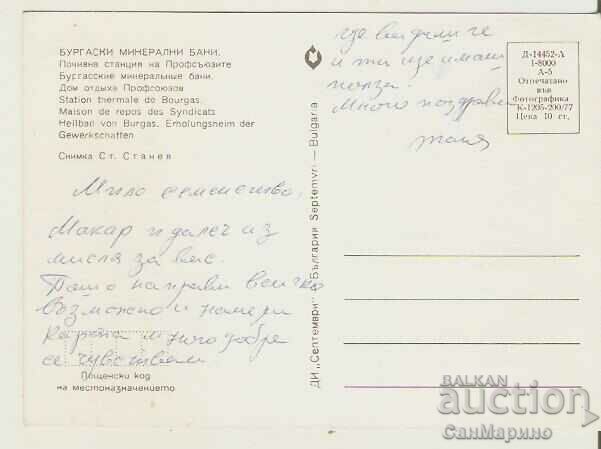 БУРГАСКИ МИНЕРАЛНИ БАНИ.
Почивна станция на Профсъюзите
Бургасские минеральные бани.
Дом отдыха Профсоюзов
Station thermale de Bourgas.
Maison de repos des Syndicats
Heilban von Burgas. Erholungsheim der
Gewerkschaften
Снимка Ст. Станев
Мило семейство,
Макар и далеч из
мисля за вас.
направи всичко
възможно и намери
много добре
се чувствам
Пощенски код
на местоназначението
ДИ „Септември" — България Septemvri — Bulgaria
где видели че
и ти ще имаш
полза.
Много поздрави
Д-14452-А
1-8000
А-5
Отпечатано
във
Фотографика
К-1205-200/77
Цена 10 ст.
BALKAN
auction
СанМарино